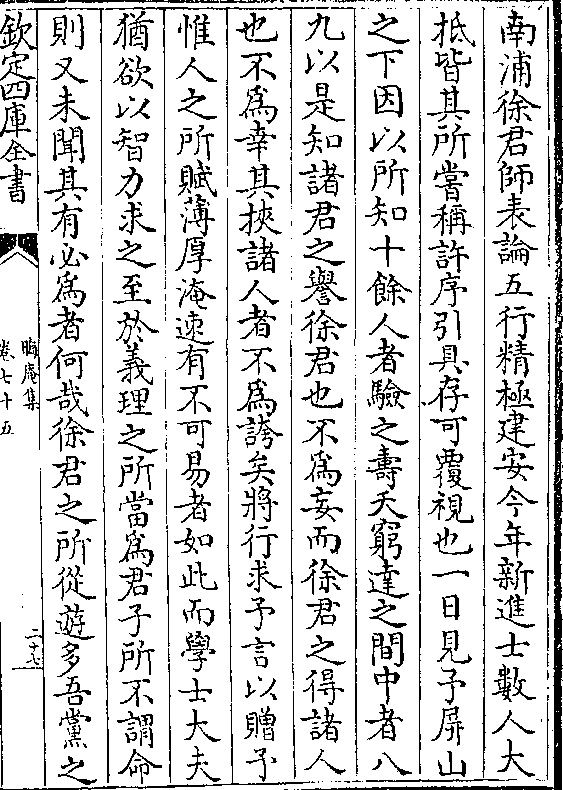 南浦徐君師表論五行精極建安今年新進士數人大
抵皆其所嘗稱許序引具存可覆視也一日見予屏山
之下因以所知十餘人者驗之壽夭窮達之間中者八
九以是知諸君之譽徐君也不為妄而徐君之得諸人
也不為幸其挾諸人者不為誇矣將行求予言以贈予
惟人之所賦薄厚淹速有不可易者如此而學士大夫
猶欲以智力求之至於義理之所當為君子所不謂命
則又未聞其有必為者何哉徐君之所從遊多吾黨之
欽定四庫全書
晦庵集
卷七十五
二十七